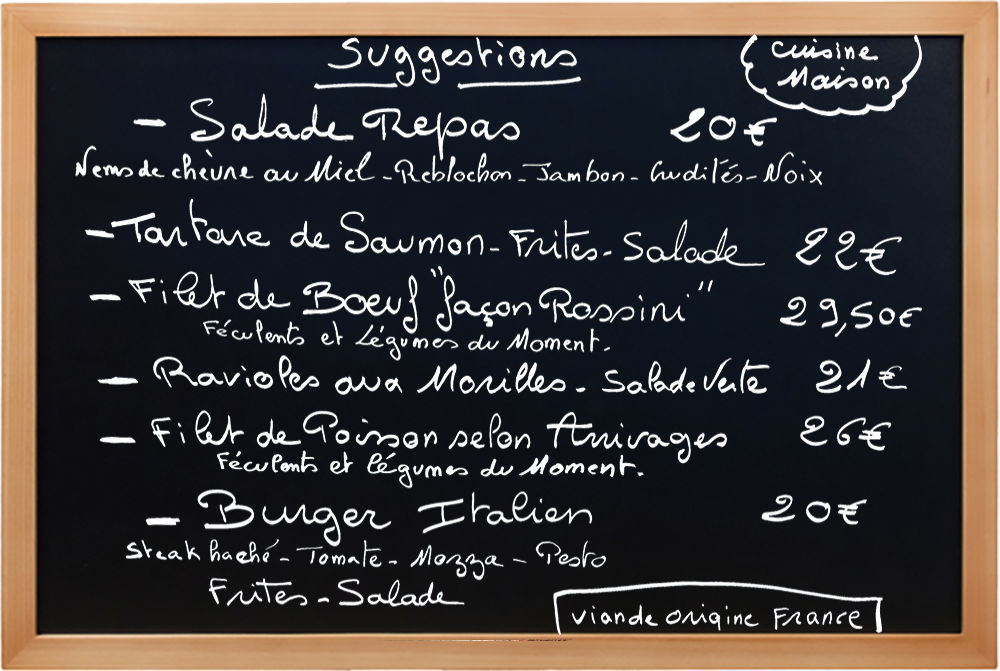 Suggestions
Cuisine
Maison
- Salade Repas 20€
Nems de chèvre au Miel - Reblochon - Jambon - Crudités - Noix
- Tartare de Saumon - Frites - Salade 22€
- Filet de Boeuf "façon Rossini" 29,50€
Féculents et Légumes du Moment.
- Ravioles aux Morilles - Salade Verte 21€
- Filet de Poisson selon Arrivages 26€
Féculents et légumes du Moment.
- Burger Italien 20€
Steak haché - Tomate - Mozza - Pesto
Frites - Salade
viande origine France